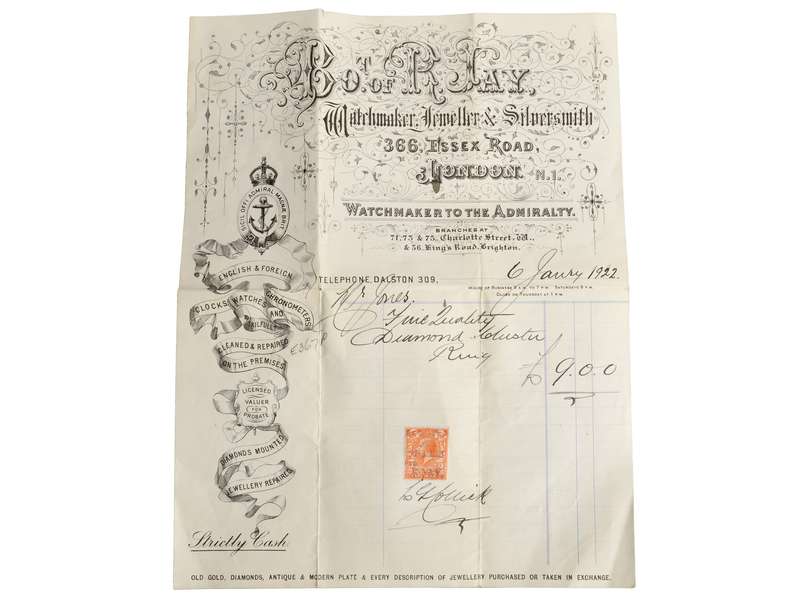 Bo.T OF R. JAY,
Watchmaker, Jeweller & Silversmith
366, ESSEX ROAD,
LONDON. N.1.
WATCHMAKER TO THE ADMIRALTY.
BRANCHES AT
71, 73 & 75, Charlotte Street, W.,
& 56, King's Road, Brighton.
SIGIL. OFFI. ADMIRAL MAGNÆ BRIT
6 Janry 1922
TELEPHONE, DALSTON 309,
HOURS OF BUSINESS 9 A.M. TO 7 P.M. SATURDAYS 9 P.M.
CLOSE ON THURSDAY AT 1 P.M.
ENGLISH & FOREIGN
CLOCKS, WATCHES AND CHRONOMETERS
SKILFULLY
CLEANED & REPAIRED
ON THE PREMISES
LICENSED
VALUER
FOR
PROBATE
DIAMONDS MOUNTED
JEWELLERY REPAIRED
Jones.
Fine Quality
Diamond Cluster
Ring
£ 9.0.0
R. JAY
Strictly Cash.
OLD GOLD, DIAMONDS, ANTIQUE & MODERN PLATE & EVERY DESCRIPTION OF JEWELLERY PURCHASED OR TAKEN IN EXCHANGE.